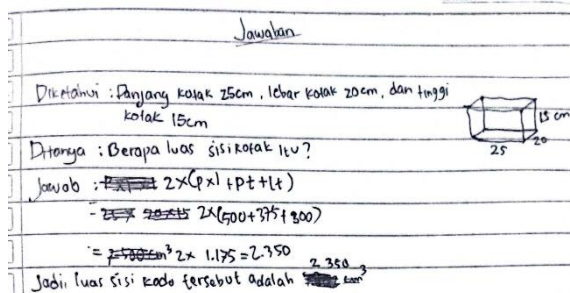 Jawaban
Diketahui : Panjang kotak 25cm, lebar kotak 20cm, dan tinggi
kotak 15cm
15 cm
20
25
Ditanya : Berapa luas sisi kotak itu?
Jawab : 2x(pxl +pt+lt)
- 2x(500+375+300)
= 2x 1.175 = 2.350
2.350
Jadi, luas sisi kado tersebut adalah cm³